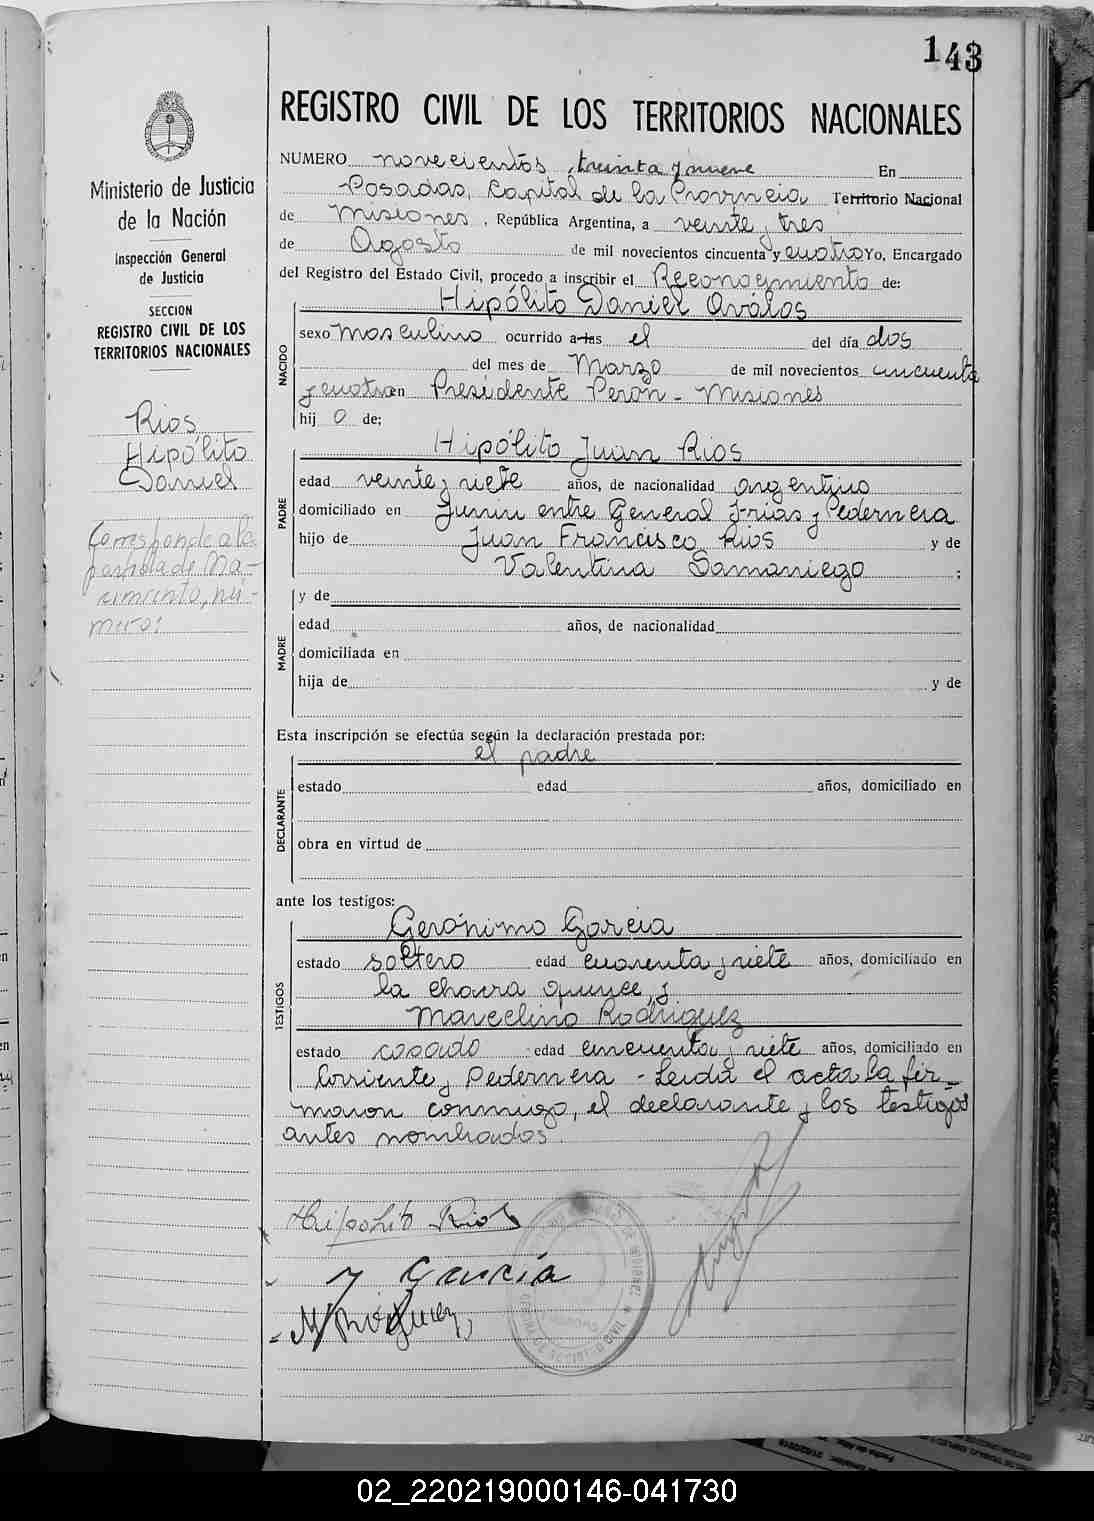 143
Ministerio de Justicia
de la Nación
Inspección General
de Justicia
SECCION
REGISTRO CIVIL DE LOS
TERRITORIOS NACIONALES
Rios
Hipólito
Daniel
Corresponde a la
de Na-
cimiento, nú-
mero:
REGISTRO CIVIL DE LOS TERRITORIOS NACIONALES
NUMERO novecientos treinta y nueve En
Posadas, Capital de la Provincia Territorio Nacional
de Misiones, República Argentina, a veinte y tres
de Agosto de mil novecientos cincuenta y cuatro Yo, Encargado
del Registro del Estado Civil, procedo a inscribir el Reconocimiento de:
Hipólito Daniel Ovalos
NACIDO
sexo Masculino ocurrido a las el del día dos
del mes de Marzo de mil novecientos cincuenta
y cuatro en Presidente Perón - Misiones
hij o de;
PADRE
Hipólito Juan Rios
edad veinte y siete años, de nacionalidad argentino
domiciliado en Junin entre General Frias y Pedernera
hijo de Juan Francisco Rios y de
Valentina Samaniego ;
MADRE
y de
edad años, de nacionalidad
domiciliada en
hija de y de
Esta inscripción se efectúa según la declaración prestada por:
el padre
DECLARANTE
estado edad años, domiciliado en
obra en virtud de
ante los testigos:
TESTIGOS
Gerónimo Garcia
estado soltero edad cuarenta y siete años, domiciliado en
la chacra quince, y
Marcelino Rodriguez
estado casado edad cincuenta y siete años, domiciliado en
Corriente y Pedernera - Leida el acta la fir-
maron conmigo, el declarante y los testigos
antes nombrados.
Hipolito Rios
Garcia
02_220219000146-041730